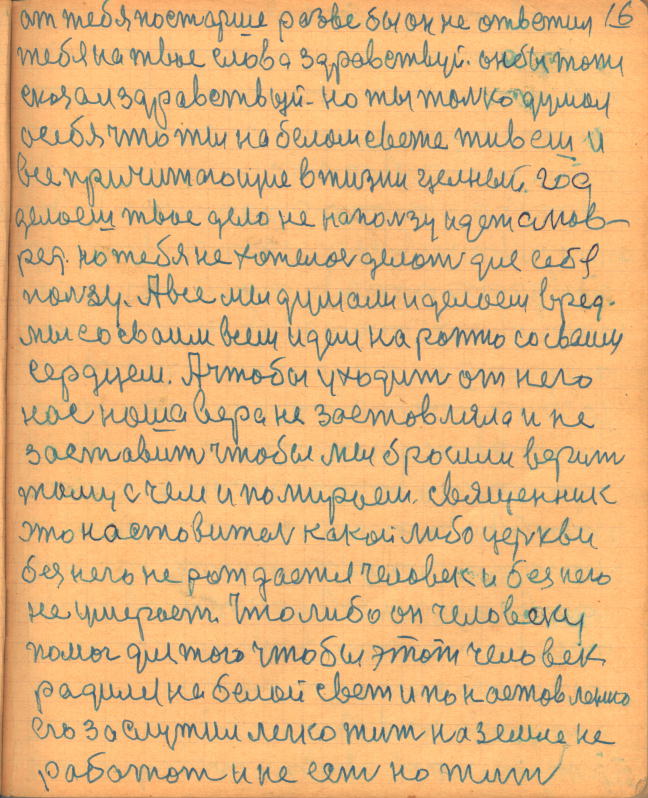 от тебя постарше разве бы он не ответил 16
тебя на твое слова здравствуй. он бы тоти
сказал здравствуй - но ты толко думал
о себя что ти на белом свете живеш и
все причитающие в жизни целней. год
делаеш твое дело не на ползу идет а мов-
ред. но тебя не хотелос делат для себе
ползу. А все мы думали и делаем вред.
мы со сваим всем идем на ратно со сваим
сердцем. А чтобы уходит от него
нас наша вера не заставляла и не
заставит чтобы мы бросили верит
тому с чем и помираем. священник
это наставител какой либо церкви
без него не рождается человек и без него
не умерает. Что либо он человеку
помог для того чтобы этот человек
радился на белой свет и по наставлению
его заслужил легко жит на земле не
работат и не ест но жит